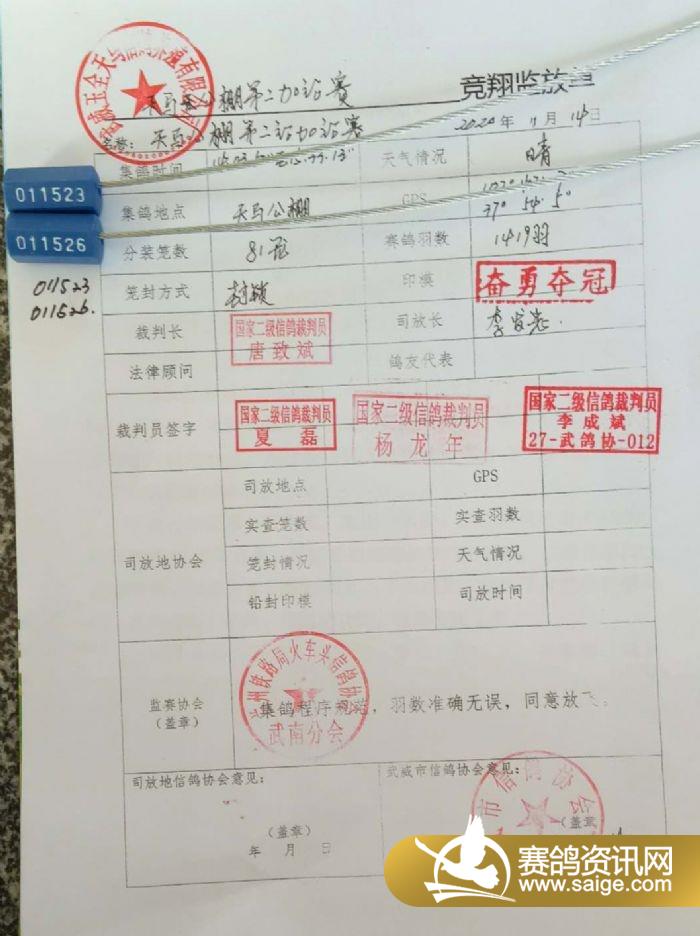 竞翔监放单
天马公棚第二加站赛
名称: 天马公棚第二站加站赛
2020年 11月 14日
集鸽时间
天气情况 晴
011523
011526
集鸽地点 天马公棚 GPS
37° 54' 50"
分装笼数 81 赛鸽羽数 1419羽
011523
011526.
笼封方式 封锁 印模 奋勇夺冠
裁判长 国家二级信鸽裁判员
唐致斌
司放长
法律顾问 鸽友代表
裁判员签字
国家二级信鸽裁判员
夏磊
国家二级信鸽裁判员
杨龙年
国家二级信鸽裁判员
李成斌
27-武鸽协-012
司放地协会
司放地点 GPS
实查笼数 实查羽数
笼封情况 天气情况
铅封印模 司放时间
监赛协会
(盖章)
州铁路局火车头信鸽协
武南分会
集鸽程序规范,羽数准确无误,同意放飞。
司放地信鸽协会意见:
(盖章)
年 月 日
武威市信鸽协会意见:
市信鸽协会
(盖章
赛鸽资讯网
www.saige.com